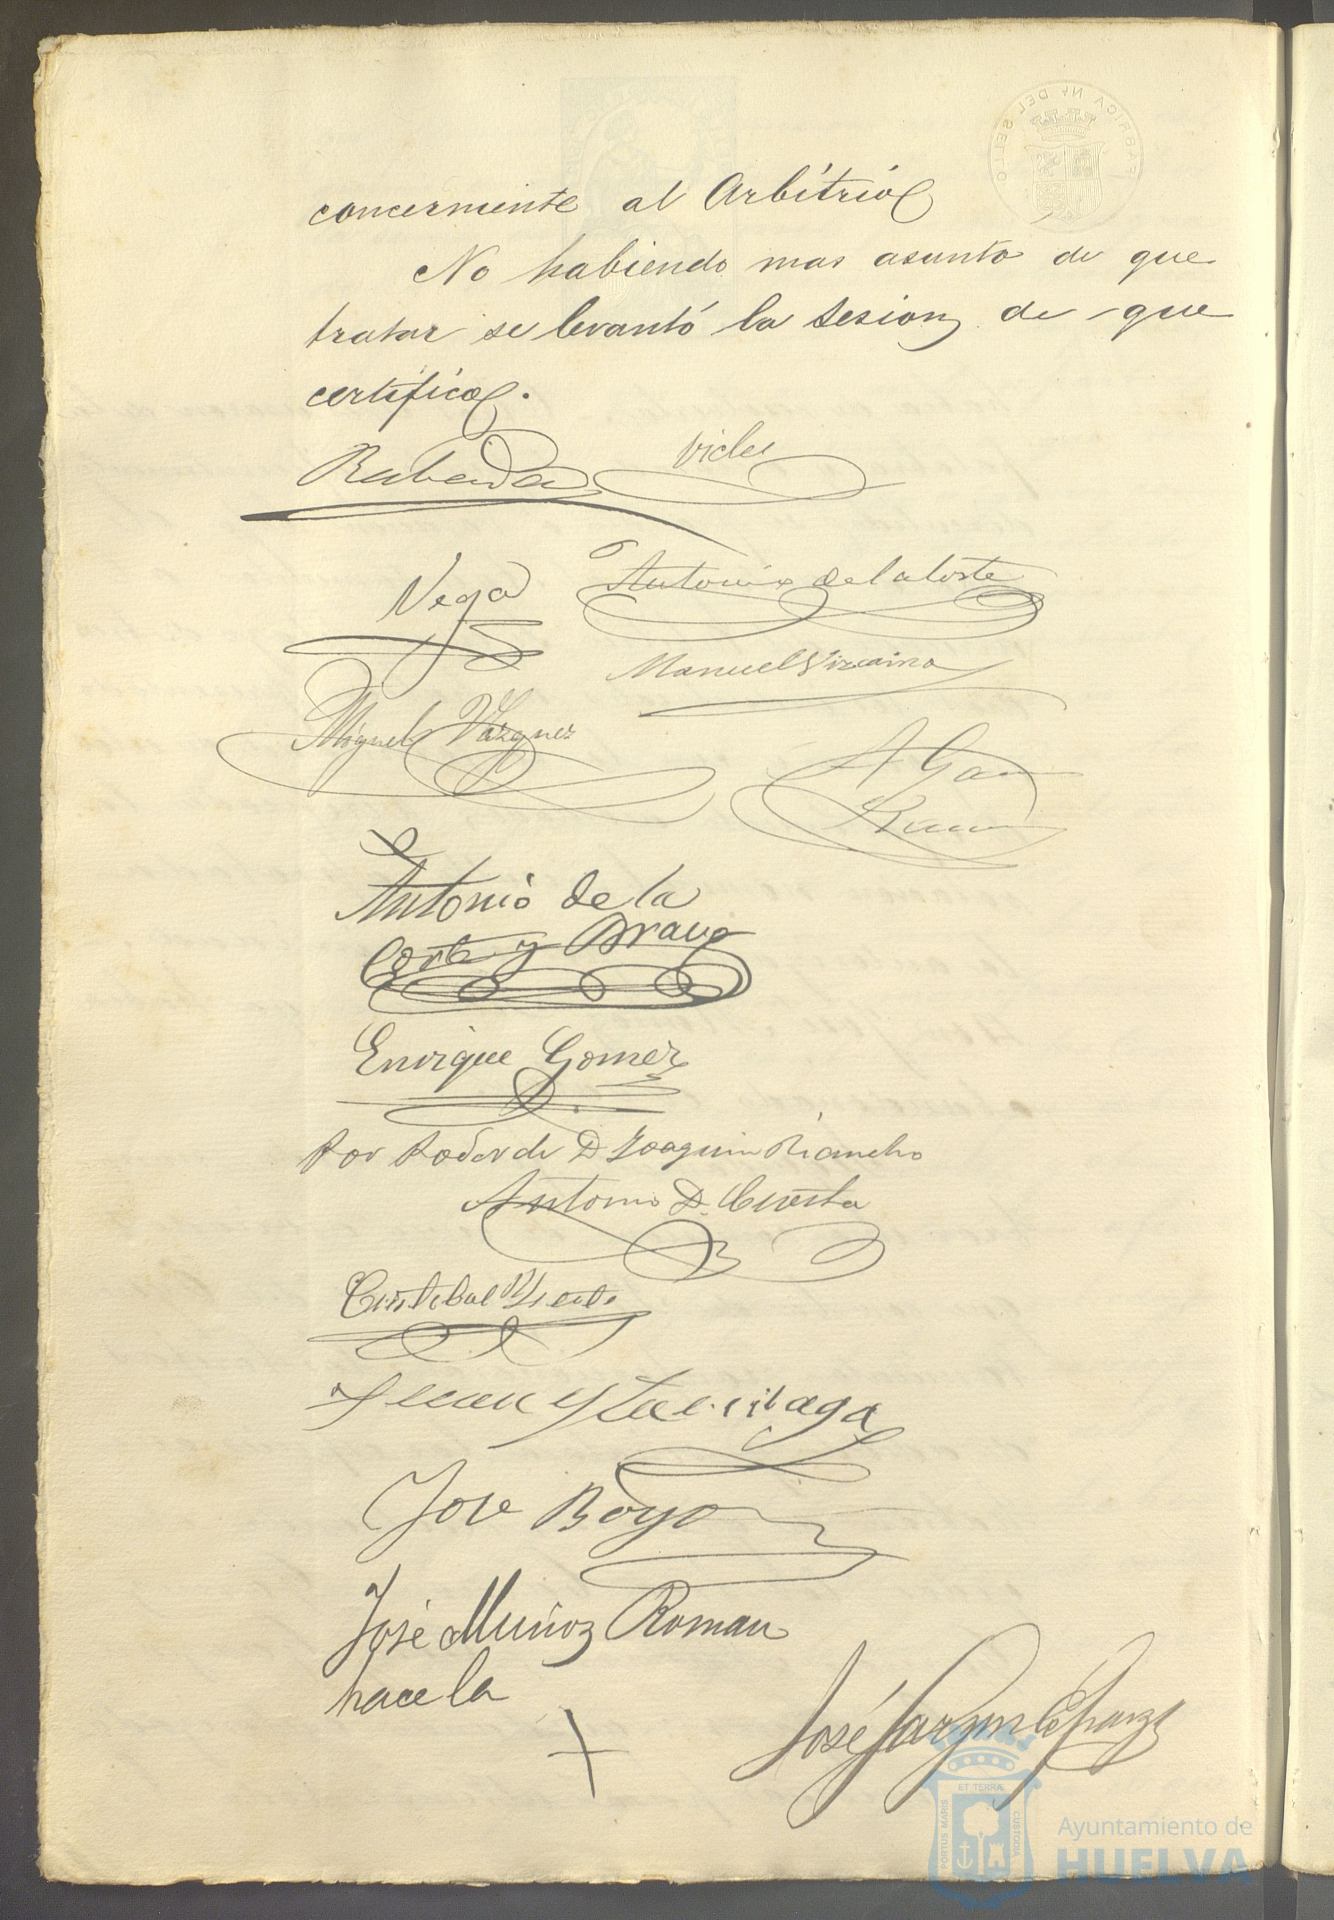 concerniente al Arbitrio
No habiendo mas asunto de que
tratar se levantó la sesion, de que
certifico.
Vega
Antonio de la Corte
Manuel Vizcaino
Miguel Vazquez
A Gar
Antonio de la
Corte y Bravo
Enrique Gomez
Por Poder de D Joaquin Riancho
Antonio D. Cuesta
Cristobal
Juan
José Boyo
José Muñoz Roman
hace la
+
José
FABRICA N^L DEL SELLO
ET TERRA
PORTUS MARIS
CUSTODIA
Ayuntamiento de
HUELVA